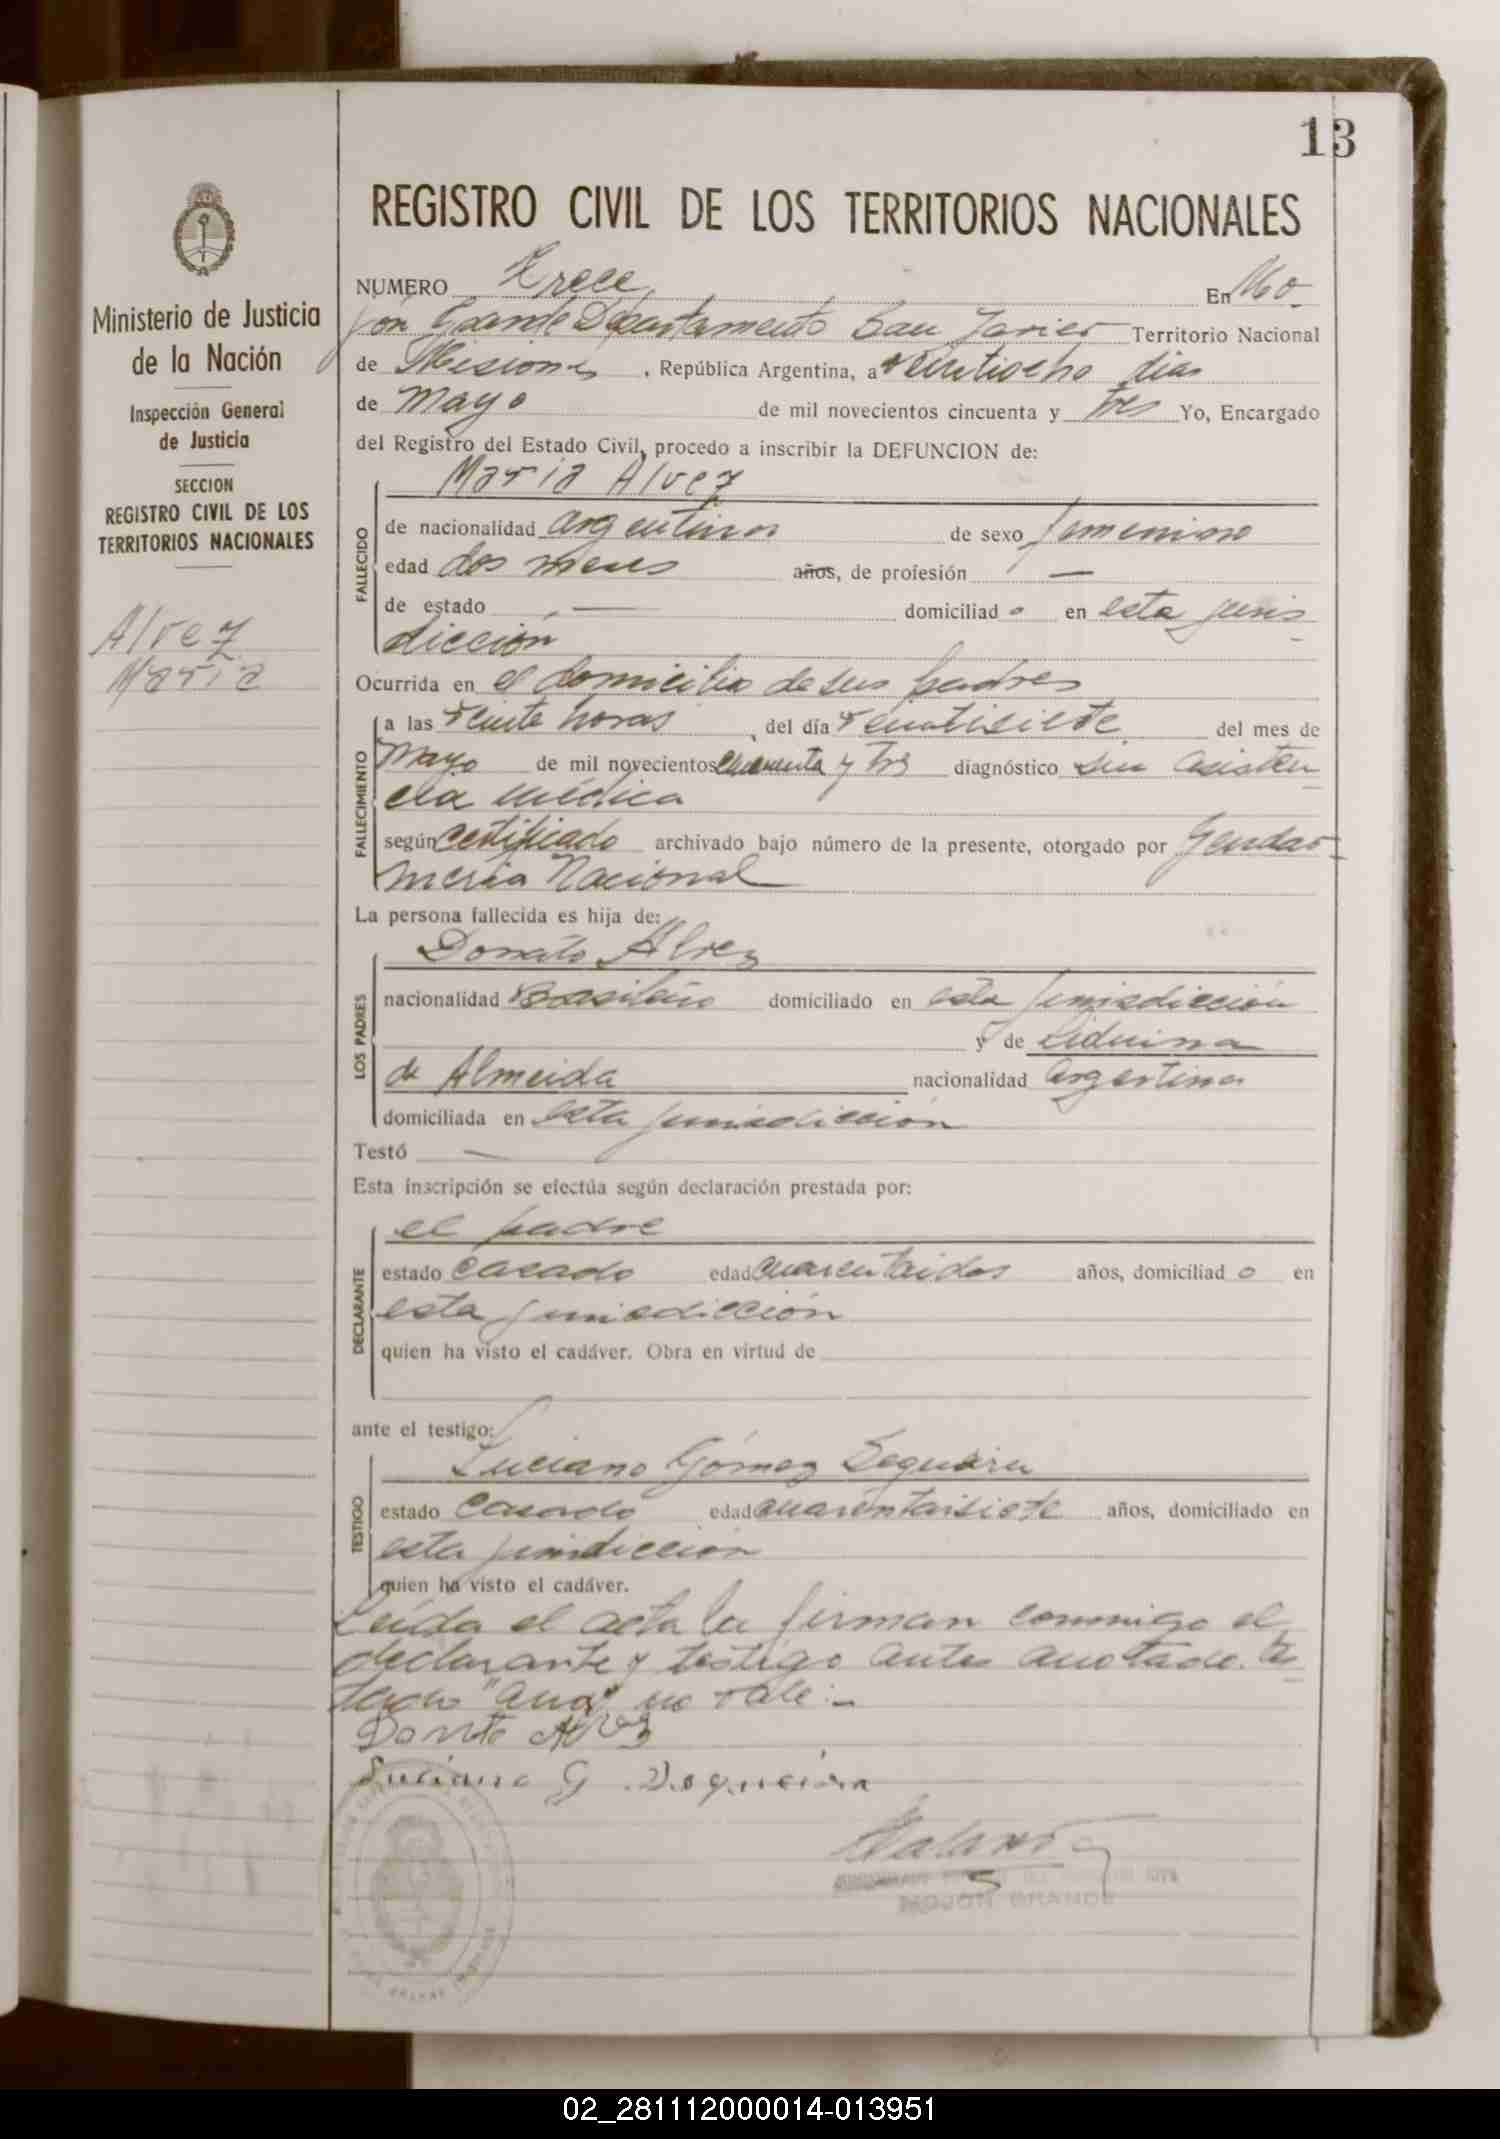 13
REGISTRO CIVIL DE LOS TERRITORIOS NACIONALES
Ministerio de Justicia
de la Nación
Inspección General
de Justicia
SECCION
REGISTRO CIVIL DE LOS
TERRITORIOS NACIONALES
Alvez
Maria
NUMERO Trece En Mo-
jón Grande Departamento San Javier Territorio Nacional
de Misiones, República Argentina, a veintiocho dias
de Mayo de mil novecientos cincuenta y tres Yo, Encargado
del Registro del Estado Civil, procedo a inscribir la DEFUNCION de:
Maria Alvez
FALLECIDO
de nacionalidad argentina de sexo femenino
edad dos meses años, de profesión —
de estado — domiciliado en esta juris
dicción
Ocurrida en el domicilio de sus padres
FALLECIMIENTO
a las veinte horas, del día veintisiete del mes de
Mayo de mil novecientos cincuenta y tres diagnóstico sin asisten
cia médica
según certificado archivado bajo número de la presente, otorgado por Gendar-
mería Nacional
La persona fallecida es hija de:
Donato Alvez
LOS PADRES
nacionalidad Brasileño domiciliado en esta jurisdicción
y de Liduina
de Almeida nacionalidad argentina
domiciliada en esta jurisdicción
Testó —
Esta inscripción se efectúa según declaración prestada por:
el padre
DECLARANTE
estado casado edad cuarentaidos años, domiciliado en
esta jurisdicción
quien ha visto el cadáver. Obra en virtud de
ante el testigo:
Luciano Gómez Sequeira
TESTIGO
estado casado edad cuarentaisiete años, domiciliado en
esta jurisdicción
quien ha visto el cadáver.
Leída el acta la firman conmigo el
declarante y testigo antes anotado. Tes
tado "ana" no vale:-
Donato Alvez
Luciano G. Sequeira
MOJON GRANDE
02_281112000014-013951